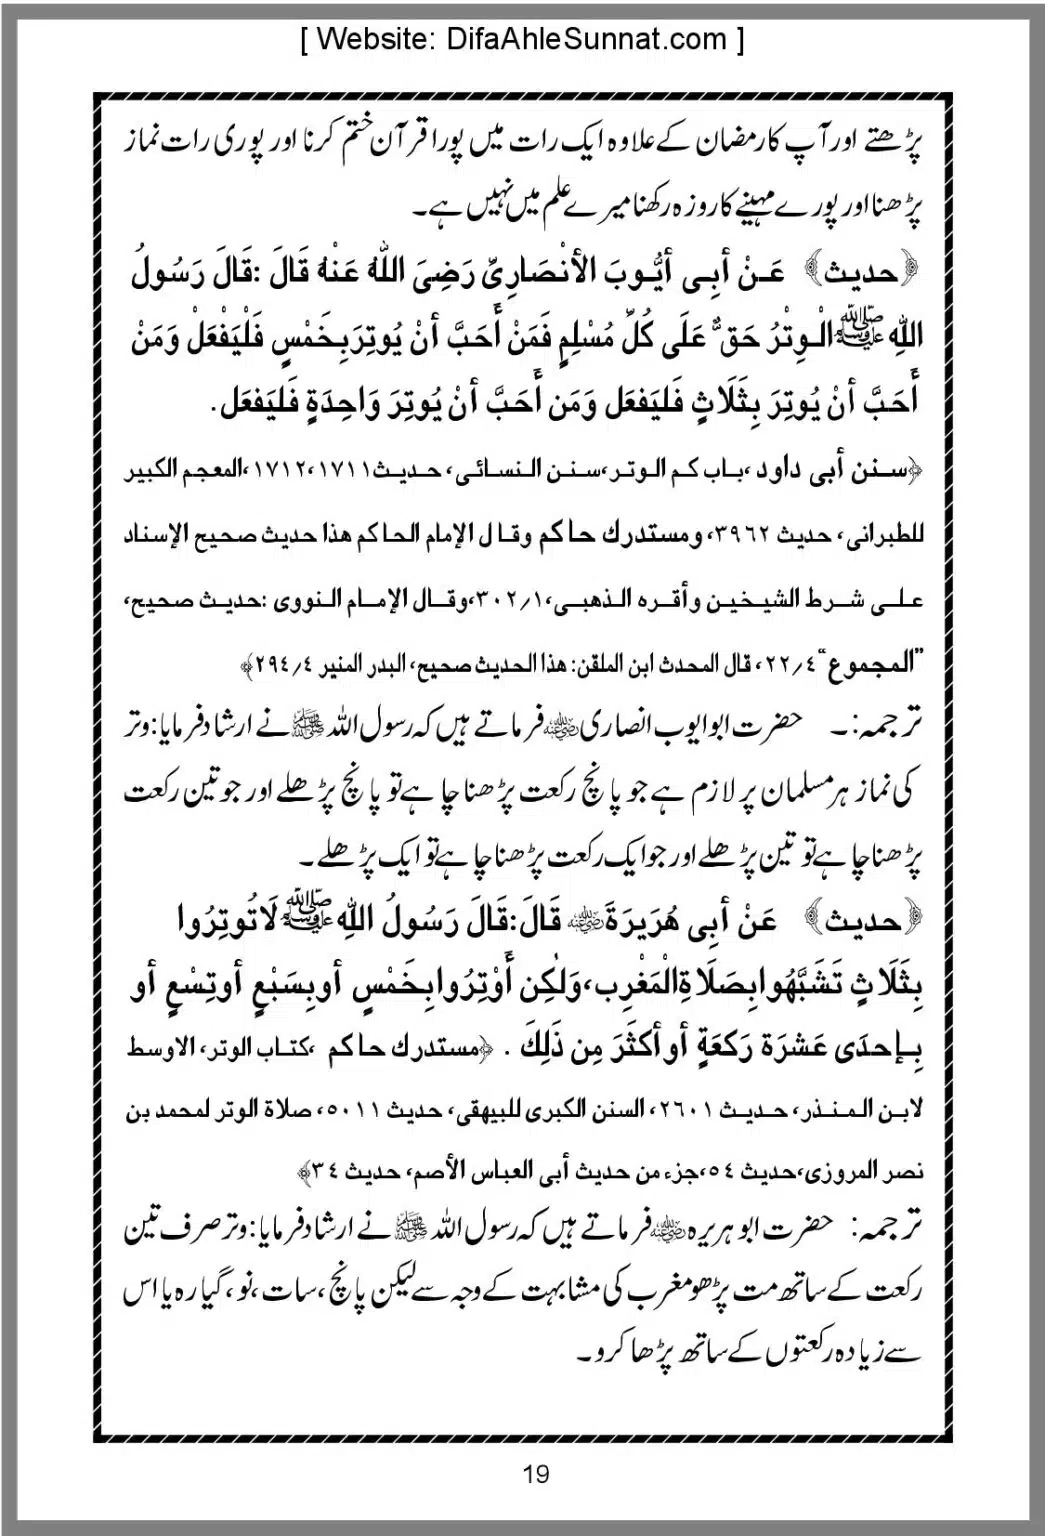 [ Website: DifaAhleSunnat.com ]
پڑھتے اور آپ کا رمضان کے علاوہ ایک رات میں پورا قرآن ختم کرنا اور پوری رات نماز
پڑھنا اور پورے مہینے کا روزہ رکھنا میرے علم میں نہیں ہے۔
﴿حدیث﴾ عَـنْ أبِـی أیُّـوبَ الأنْصَارِیِّ رَضِیَ اللّٰهُ عَنْهُ قَالَ :قَالَ رَسُولُ
اللّٰهِ ﷺ الْـوِتْرُ حَقٌّ عَلَی کُلِّ مُسْلِمٍ فَمَنْ أَحَبَّ أنْ یُوتِرَبِخَمْسٍ فَلْیَفْعَلْ وَمَنْ
أَحَبَّ أنْ یُوتِرَ بِثَلَاثٍ فَلیَفْعَل وَمَن أَحَبَّ أنْ یُوتِرَ وَاحِدَةٍ فَلیَفعَل.
﴿سنن أبی داود ،باب کم الوتر،سنن النسائی، حدیث۱۷۱۱،۱۷۱۲،المعجم الکبیر
للطبرانی، حدیث ۳۹۶۲، ومستدرك حاکم وقال الإمام الحاکم هذا حدیث صحیح الإسناد
علی شرط الشیخین وأقره الذهبی،۳۰۲/۱،وقال الإمام النووی :حدیث صحیح،
”المجموع“۲۲/۴، قال المحدث ابن الملقن: هذا الحدیث صحیح، البدر المنیر ۲۹۴/۴﴾
ترجمہ:۔ حضرت ابوایوب انصاری ؓ فرماتے ہیں کہ رسول اللہ ﷺ نے ارشاد فرمایا: وتر
کی نماز ہر مسلمان پر لازم ہے جو پانچ رکعت پڑھنا چاہے تو پانچ پڑھلے اور جو تین رکعت
پڑھنا چاہے تو تین پڑھلے اور جو ایک رکعت پڑھنا چاہے تو ایک پڑھلے۔
﴿حدیث﴾ عَنْ أبِی هُرَیرَةَ ؓ قَالَ:قَالَ رَسُولُ اللّٰهِ ﷺ لَاتُوتِرُوا
بِثَلَاثٍ تَشَبَّهُوابِصَلَاةِالْمَغْرِبِ،وَلٰکِن أَوْتِرُوابِخَمْسٍ أوبِسَبْعٍ أوتِسْعٍ أو
بِـإحدَی عَشرَة رَکعَةٍ أوأکثَرَ مِن ذَلِكَ . ﴿مستدرك حاکم ،کتاب الوتر، الاوسط
لابن المنذر، حدیث ۲۶۰۱، السنن الکبری للبیهقی، حدیث ۵۰۱۱، صلاة الوتر لمحمد بن
نصر المروزی،حدیث ۵۴،جزء من حدیث أبی العباس الأصم، حدیث ۳۴﴾
ترجمہ: حضرت ابو ہریرہ ؓ فرماتے ہیں کہ رسول اللہ ﷺ نے ارشاد فرمایا: وتر صرف تین
رکعت کے ساتھ مت پڑھو مغرب کی مشابہت کے وجہ سے لیکن پانچ، سات، نو، گیارہ یا اس
سے زیادہ رکعتوں کے ساتھ پڑھا کرو۔
19